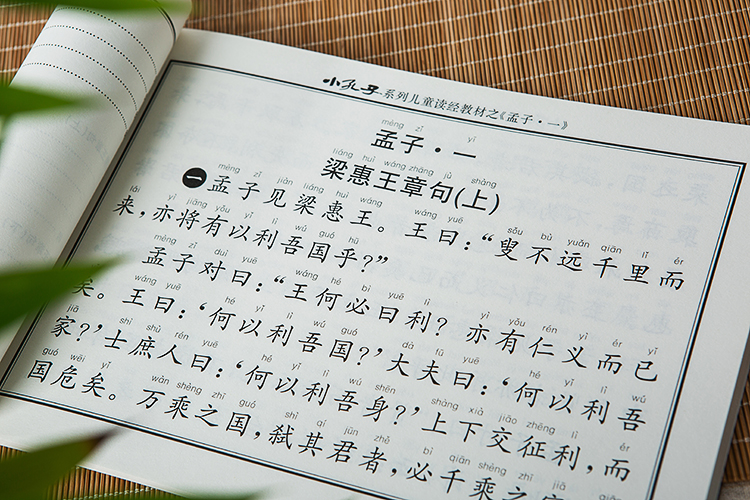 小孔子系列儿童读经教材之《孟子·一》
mèng zǐ yī
孟子·一
liáng huì wáng zhāng jù shàng
梁惠王章句(上)
mèng zǐ jiàn liáng huì wáng wáng yuē sǒu bù yuǎn qiān lǐ ér
一孟子见梁惠王。王曰：“叟不远千里而
lái yì jiāng yǒu yǐ lì wú guó hū
来，亦将有以利吾国乎？”
mèng zǐ duì yuē wáng hé bì yuē lì yì yǒu rén yì ér yǐ
孟子对曰：“王何必曰利？亦有仁义而已
wáng yuē hé yǐ lì wú guó dà fū yuē hé yǐ lì wú
矣。王曰：‘何以利吾国？’大夫曰：‘何以利吾
jiā shì shù rén yuē hé yǐ lì wú shēn shàng xià jiāo zhēng lì ér
家？’士庶人曰：‘何以利吾身？’上下交征利，而
guó wēi yǐ wàn shèng zhī guó shì qí jūn zhě bì qiān shèng zhī
国危矣。万乘之国，弑其君者，必千乘之